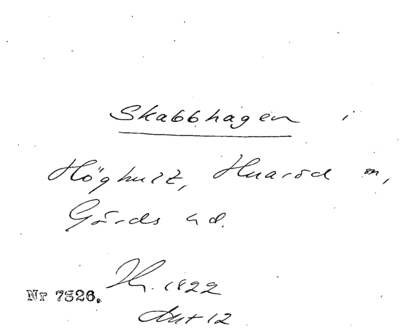 Skabbhagen i
Höghult, Huaröd sn,
Gärds hd.
Nr 7326. Hr. 1822
Akt 12